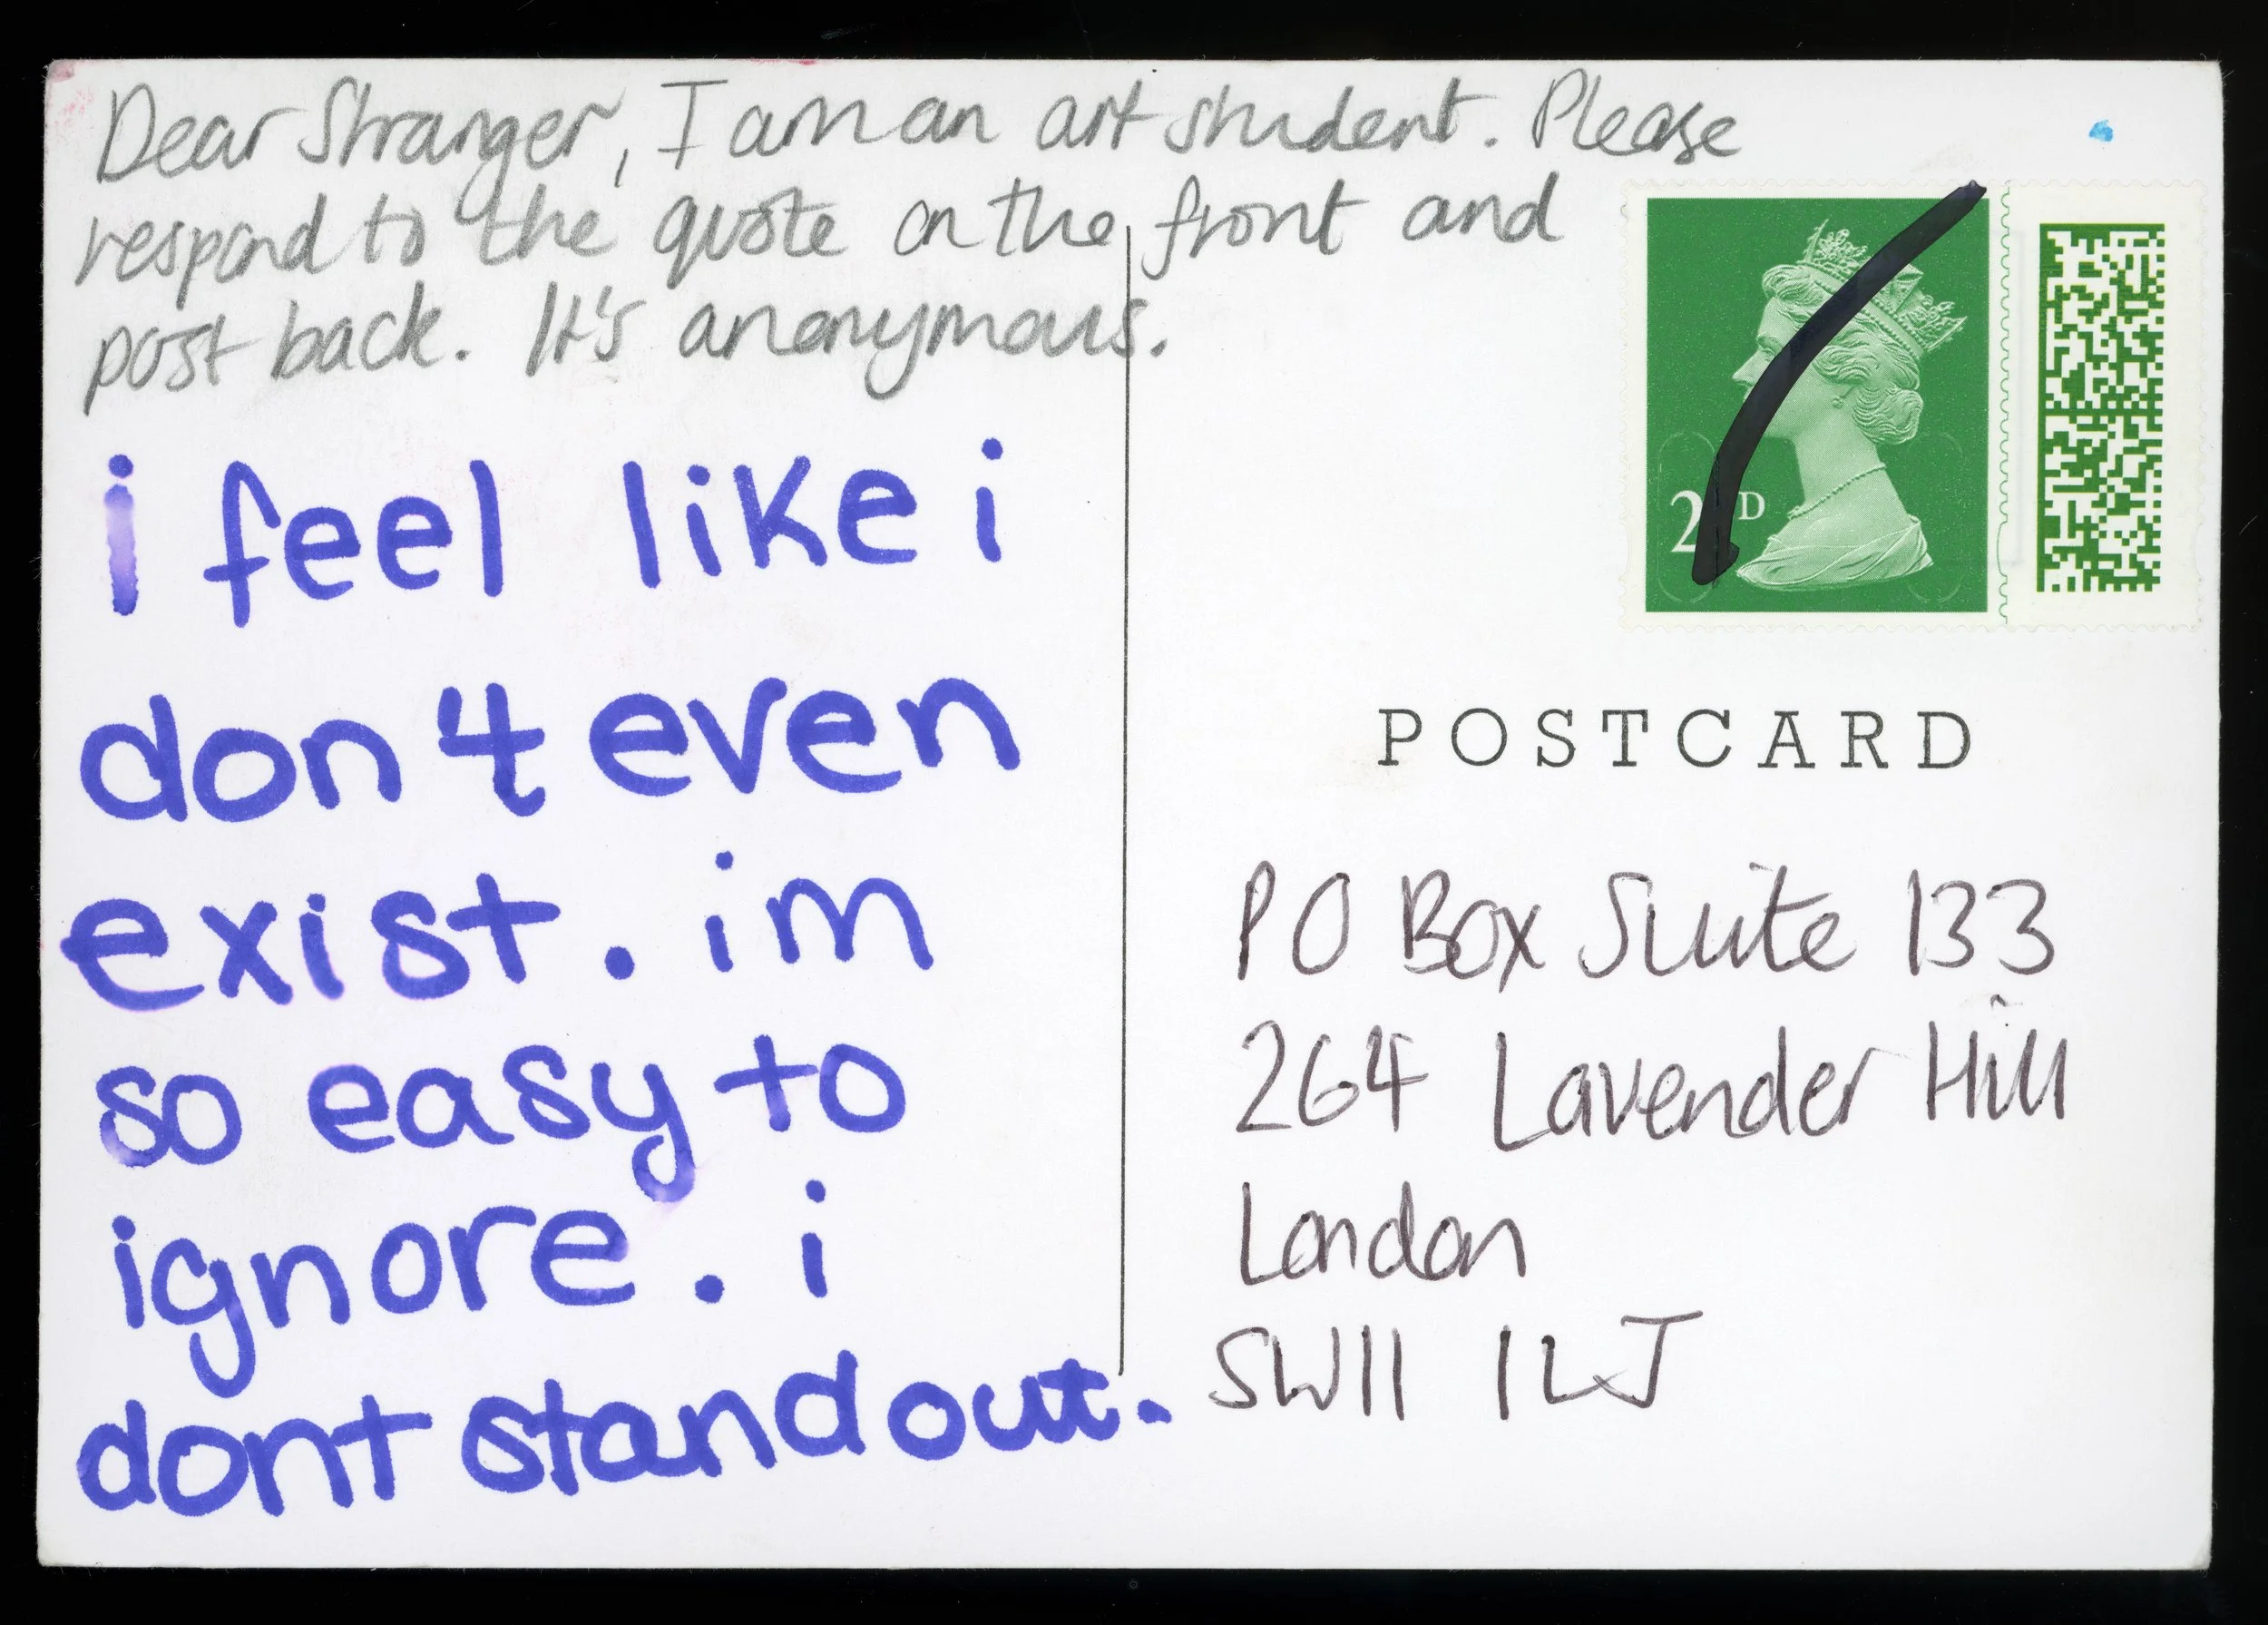 Dear Stranger, I am an art student. Please
respond to the quote on the front and
post back. It's anonymous.
i feel like i
don't even
exist. im
so easy to
ignore. i
dont stand out.
2ND
POSTCARD
PO Box Suite 133
264 Lavender Hill
London
SW11 1LJ